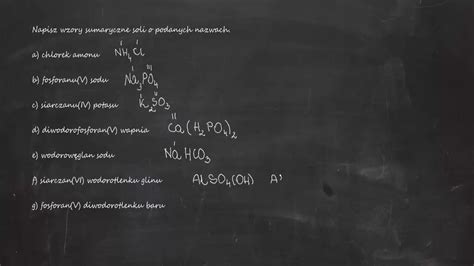 Napisz wzory sumaryczne soli o podanych nazwach.
a) chlorek amonu NH₄Cl
b) fosforanu(V) sodu Na₃PO₄
c) siarczanu(IV) potasu K₂SO₃
d) diwodorofosforan(V) wapnia Ca(H₂PO₄)₂
e) wodorowęglan sodu NaHCO₃
f) siarczan(VI) wodorotlenku glinu AlSO₄(OH) A
g) fosforan(V) diwodorotlenku baru